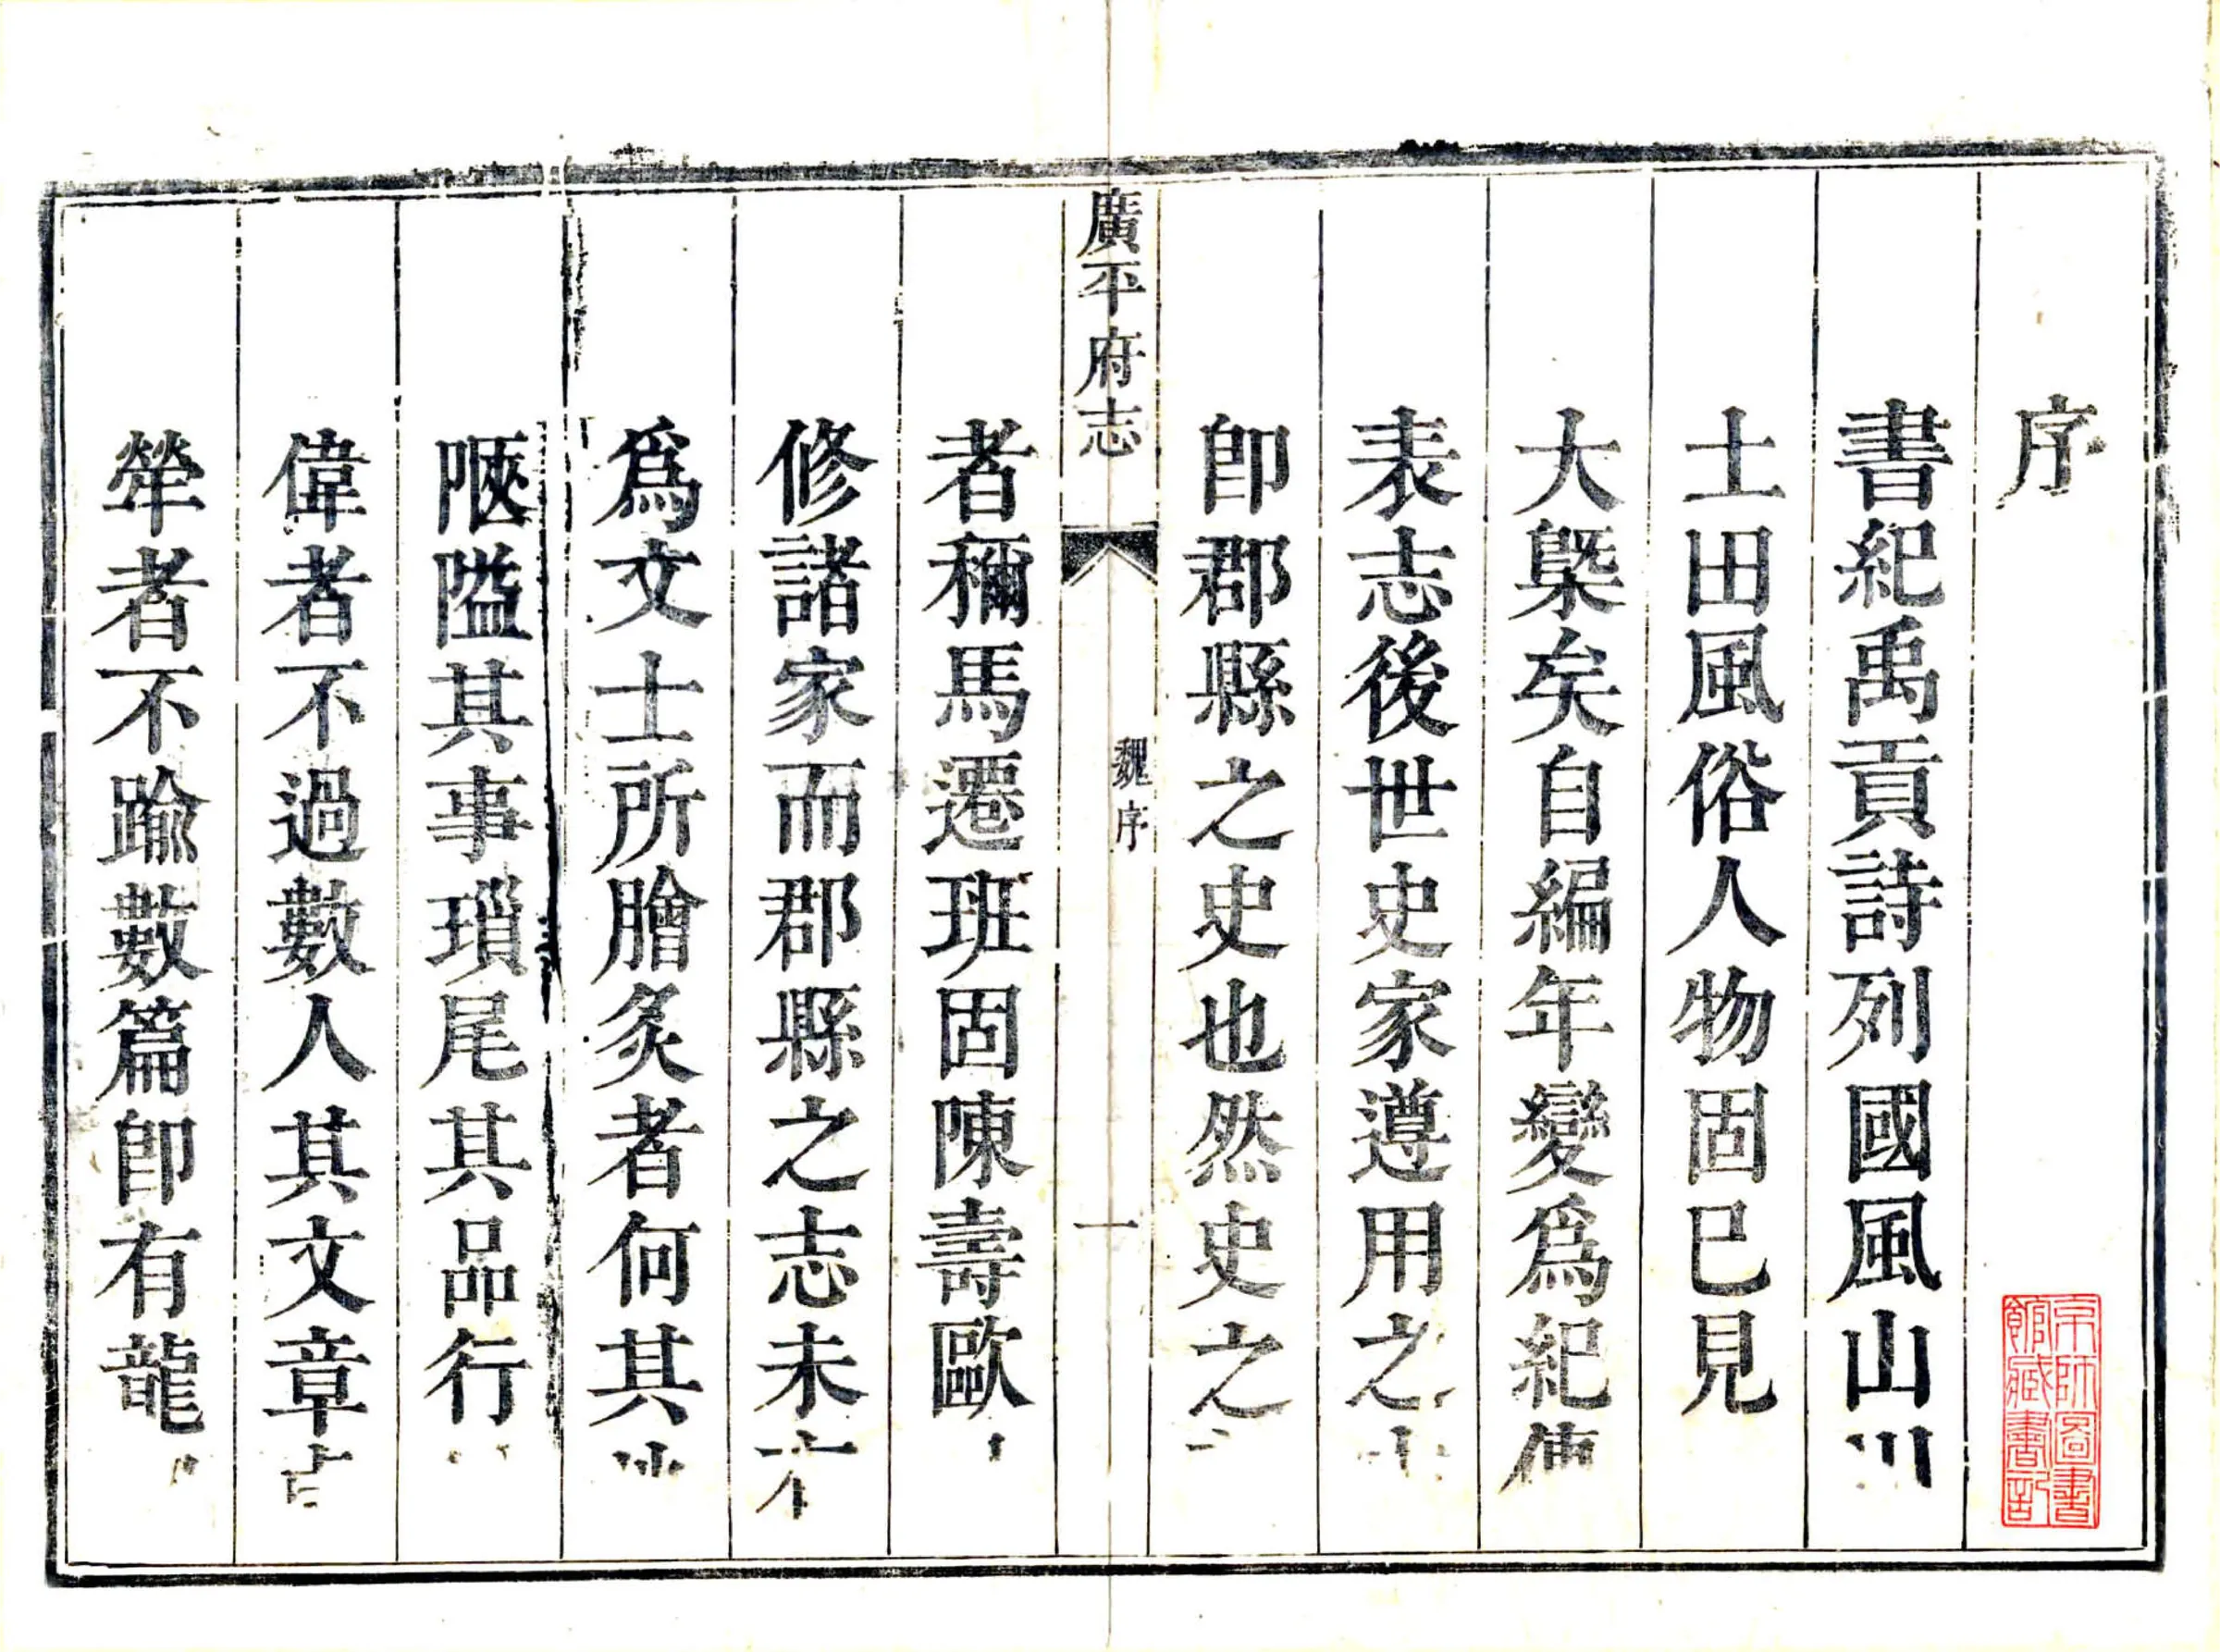 序
書紀禹貢詩列國風山川
土田風俗人物固已見
大槩矣自編年變爲紀傳
表志後世史家遵用之
卽郡縣之史也然史之
廣平府志
魏序
一
者稱馬遷班固陳壽歐
修諸家而郡縣之志未有
爲文士所膾炙者何其
陿隘其事瑣尾其品行
偉者不過數人其文章
犖者不踰數篇卽有龍
京師圖書
館藏書記